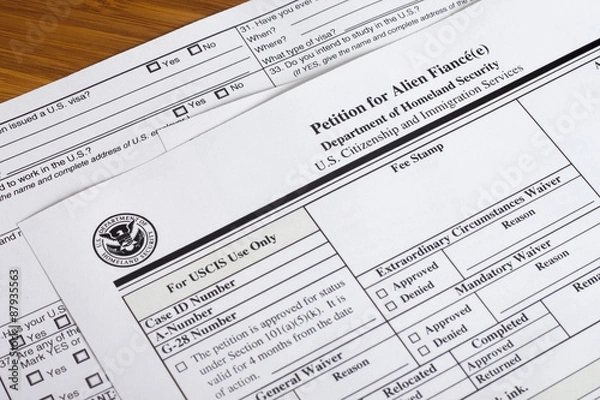 31. Have you ever
When?
Where?
What type of visa?
33. Do you intend to study in the U.S.?
(If YES, give the name and complete address of the
Yes No
n issued a U.S. visa?
Yes No
d to work in the U.S.?
the name and complete address of U.S.
Petition for Alien Fiancé(e)
Department of Homeland Security
U.S. Citizenship and Immigration Services
U.S. DEPARTMENT OF HOMELAND SECURITY
For USCIS Use Only
Fee Stamp
Case ID Number
A-Number
G-28 Number
The petition is approved for status
under Section 101(a)(5)(k). It is
valid for 4 months from the date
of action.
Extraordinary Circumstances Waiver
Approved Reason
Denied
Mandatory Waiver
Approved Reason
Denied
General Waiver
Reason
Rema
Relocated
Completed
Approved
Returned
ink.
your U.S.
Yes
are any of the
Mark YES or
Yes
Yes
Adobe Stock | #87935563
Adobe Stock